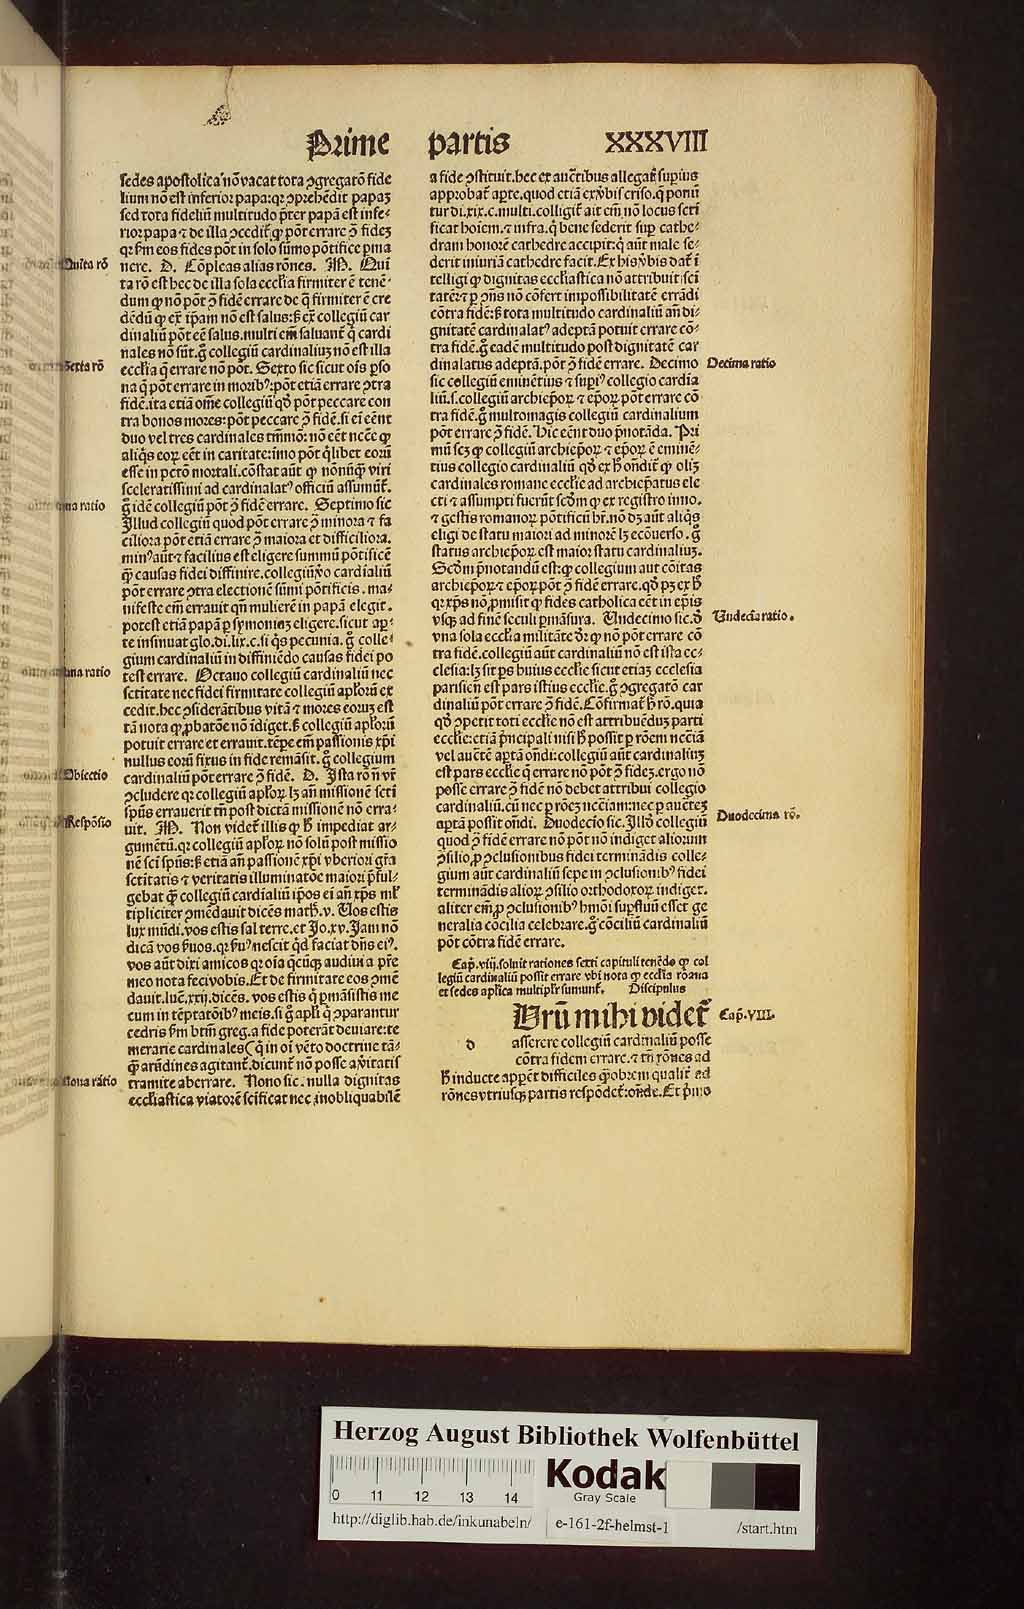 Prime partis XXXVIII
sedes apostolica nō vacat tota ꝯgregatō fide
lium nō est inferior papa: qꝛ ꝯprehēdit papaʒ
sed tota fideliū multitudo p̄ter papā est infe⸗
rior papa ⁊ de illa ꝯcedit̄ ꝙ pōt errare ꝯ̄ fideʒ
qꝛ ẜm eos fides pōt in solo sūmo pōtifice ꝑma
nere. D. Cōpleas alias rōnes. M. Qui
ta rō est hec de illa sola eccl̄ia firmiter ē tenē⸗
dum ꝙ nō pōt ꝯ̄ fidē errare de q̄ firmiter ē cre
dēdū ꝙ ex̄ ip̄am nō est salus: ẜ ex̄ collegiū car
dinaliū pōt eē salus. multi em̄ saluant̄ q̄ cardi
nales nō sūt. g̊ collegiū cardinaliuʒ nō est illa
eccl̄ia q̄ errare nō pōt. Sexto sic sicut oīs ꝑso
na q̄ pōt errare in moribꝰ: pōt etiā errare ꝯtra
fidē. ita etiā om̄e collegiū qd̄ pōt peccare con
tra bonos mores: pōt peccare ꝯ̄ fidē. si em̄ eēnt
duo vel tres cardinales tm̄mō: nō eēt ncc̄e ꝙ
aliq̄s eoꝝ eēt in caritate: īmo pōt q̄libet eorū
esse in pctō mortali. cōstat aūt ꝙ nōnūꝙ viri
sceleratissimi ad cardinalatꝰ officiū assumūt̄.
g̊ idē collegiū pōt ꝯ̄ fidē errare. Septimo sic
Illud collegiū quod pōt errare ꝯ̄ minora ⁊ fa
ciliora pōt etiā errare ꝯ̄ maiora et difficiliora.
minꝰ aūt ⁊ facilius est eligere summū pōtificē
ꝙ̄ causas fidei diffinire. collegiū v̊o cardialiū
pōt errare ꝯtra electionē sūmi pōtificis. ma⸗
nifeste em̄ errauit qn̄ mulierē in papā elegit.
potest etiā papā ꝑ symoniaʒ eligere. sicut aꝑ⸗
te insinuat glo. di. lix. c. si q̄s pecunia. g̊ colle⸗
gium cardinaliū in diffiniēdo causas fidei po
test errare. Octauo collegiū cardinaliū nec
sctītate nec fidei firmitate collegiū apl̄orū ex
cedit. hec ꝯsiderātibus vitā ⁊ mores eoruʒ est
tā nota ꝙ ꝓbatōe nō īdiget. ẜ collegiū apl̄orū
potuit errare et errauit. tēpe em̄ passionis xp̄i
nullus eorū fixus in fide remāsit. g̊ collegium
cardinaliū pōt errare ꝯ̄ fidē. D. Ista rō n̄ vr̄
ꝯcludere qꝛ collegiū apl̄oꝝ lʒ an̄ missionē scti
sp̄us errauerit tn̄ post dictā missionē nō erra⸗
uit. M. Non videt̄ illis ꝙ h̄ impediat ar⸗
gumētū. qꝛ collegiū apl̄oꝝ nō solū post missio
nē sci sp̄us: ẜ etiā an̄ passionē xp̄i vberiori gr̄a
sctītatis ⁊ veritatis illuminatōe maiori p̄ful⸗
gebat ꝙ̄ collegiū cardīaliū ip̄os ei an̄ xp̄s ml̄
tipliciter ꝯmēdauit dicēs math̄. v. Vos estis
lux mūdi. vos estis sal terre. et Jo. xv. Jam nō
dicā vos ẜuos. qꝛ ẜuꝰ nescit q̄d faciat dn̄s eiꝰ.
vos aūt dixi amicos qꝛ oīa q̄cūqꝫ audiui a pr̄e
meo nota feci vobis. Et de firmitate eos ꝯmē
dauit. luc̄. xxij. dicēs. vos estis q̄ ꝑmāsistis me
cum in tēptatōibꝰ meis. si g̊ apl̄i q̄ ꝯparantur
cedris ẜm btm̄ greg. a fide poterāt deuiare: te
merarie cardinales (q̄ in oī vēto doctrine tā⸗
ꝙ̄ arūdines agitant̄. dicunt̄ nō posse a v̄itatis
tramite aberrare. Nono sic. nulla dignitas
eccl̄iastica viatorē scificat nec inobliquabilē
Quīta rō
Sexta rō
ma ratio
na ratio
Obiectio
Respōsio
Nona rātio
a fide ꝯstituit. hec ex auctibus allegat̄ supius
approbat̄ aꝑte. quod etiā ex v̄bis criso. q̄ ponū
tur di. xix. c. multi. colligit̄ ait em̄ nō locus scti
ficat hoīem. ⁊ infra. q̄ bene sederit suꝑ cathe⸗
dram honorē cathedre accipit: q̄ aūt male se⸗
derit iniuriā cathedre facit. Ex his v̄bis dat̄ ī
telligi ꝙ dignitas eccl̄iastica nō attribuit sci
tatē: ⁊ ꝑ ꝯn̄s nō cōfert impossibilitatē errādi
cōtra fidē: ẜ tota multitudo cardinaliū an̄ di⸗
gnitatē cardinalatꝰ adeptā potuit errare cō⸗
tra fidē. g̊ eadē multitudo post dignitatē car
dinalatus adeptā. pōt ꝯ̄ fidē errare. Decimo
sic collegiū eminētius ⁊ supiꝰ collegio cardīa
liū. s. collegiū archiep̄oꝝ ⁊ ep̄oꝝ pōt errare cō
tra fidē. g̊ multomagis collegiū cardinalium
pōt errare ꝯ̄ fidē. Hic eēnt duo p̄notāda. Pri
mū scʒ ꝙ collegiū archiep̄oꝝ ⁊ ep̄oꝝ ē eminē⸗
tius collegio cardinaliū qd̄ ex h̄ ōndit̄ ꝙ oliʒ
cardinales romane eccl̄ie ad archiep̄atus ele
cti ⁊ assumpti fuerūt scd̄m ꝙ ex registro inno.
⁊ gestis romanoꝝ pōtificū hr̄. nō dʒ aūt aliq̄s
eligi de statu maiori ad minorē lʒ ecōuerso. g̊
status archiep̄oꝝ est maior statu cardinaliuʒ.
Scd̄m p̄notandū est: ꝙ collegium aut cōitas
archiep̄oꝝ ⁊ ep̄oꝝ pōt ꝯ̄ fidē errare. qd̄ pʒ ex h̄
qꝛ xp̄s nō ꝓmisit ꝙ fides catholica eēt in ep̄is
vsqꝫ ad finē seculi ꝑmāsura. Undecimo sic. d̄
vna sola eccl̄ia militāte d̄r ꝙ nō pōt errare cō
tra fidē. collegiū aūt cardinaliū nō est ista ec⸗
clesia: lʒ sit ps huius eccl̄ie sicut etiaʒ ecclesia
parisien̄ est pars istius eccl̄ie. g̊ ꝯgregatō car
dinaliū pōt errare ꝯ̄ fidē. Cōfirmat̄ h̄ rō. quia
qd̄ ꝯpetit toti eccl̄ie nō est attribuēduʒ parti
eccl̄ie: etiā p̄ncipali nisi h̄ possit ꝑ rōem ncc̄iā
vel auctē aꝑtā on̄di: collegiū aūt cardinaliuʒ
est pars eccl̄ie q̄ errare nō pōt ꝯ̄ fideʒ. ergo nō
posse errare ꝯ̄ fidē nō debet attribui collegio
cardinaliū. cū nec ꝑ rōeʒ ncc̄iam: nec ꝑ auctēʒ
aꝑtā possit on̄di. Duodecīo sic. Illd̄ collegiū
quod ꝯ̄ fidē errare nō pōt nō indiget aliorum
ꝯsilio, ꝓ ꝯclusionibus fidei terminādis colle⸗
gium aūt cardinaliū sepe in ꝯclusionibꝰ fidei
terminādis alioꝝ ꝯsilio orthodoxoꝝ indiget.
aliter em̄ ꝓ ꝯclusionibꝰ hmōi supfluū esset ge
neralia cōcilia celebrare. g̊ cōciliū cardinaliū
pōt cōtra fidē errare.
Decima ratio
Undecīa ratio.
Duodecima rō.
Cap̄. viij. soluit rationes sexti capituli tenēdo ꝙ col
legiū cardinaliū possit errare vbi nota ꝙ eccl̄ia rōana
et sedes apl̄ica multipl̄r sumunt̄. Discipulus
Vrū mihi videt̄
d asserere collegiū cardinaliū posse
cōtra fidem errare. ⁊ tn̄ rōnes ad
h̄ inducte apꝑēt difficiles ꝙ̄obrem qualit̄ ad
rōnes vtriusqꝫ partis respōdet̄: ōnde. Et p̄mo
Cap̄. VIII.
Herzog August Bibliothek Wolfenbüttel
0 11 12 13 14
Kodak
Gray Scale
http://diglib.hab.de/inkunabeln/ e-161-2f-helmst-1 /start.htm